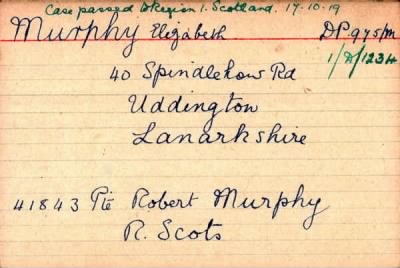 Case passed to Region 1. Scotland. 17-10-19
Murphy Elizabeth DP 975/M
1/D/1234
40 Spindlehow Rd
Uddington
Lanarkshire
41843 Pte Robert Murphy
R. Scots